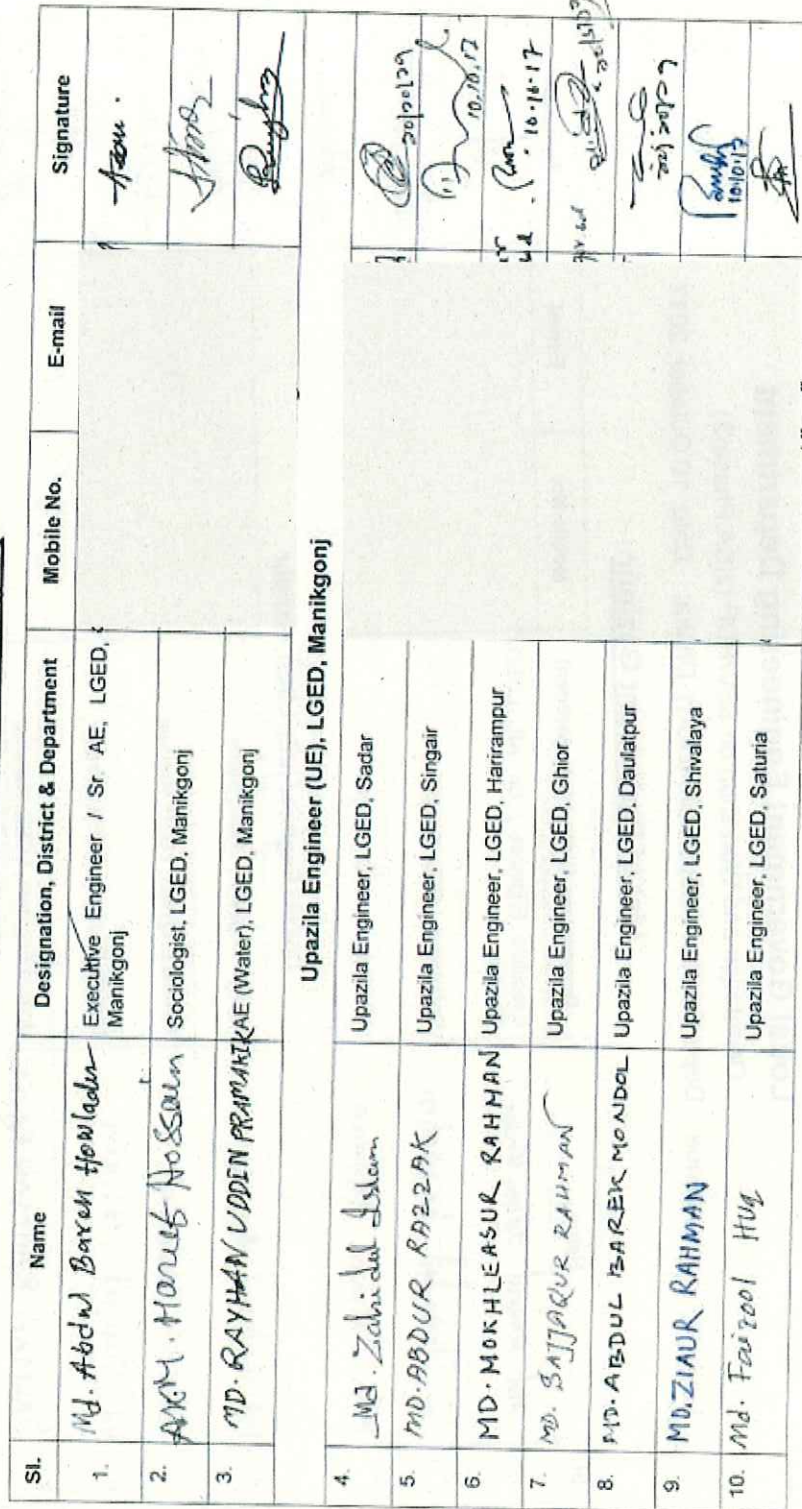 Sl. Name Designation, District & Department Mobile No. E-mail Signature
1. Md. Abdul Barek Howlader Executive Engineer / Sr. AE, LGED,
Manikgonj
2. AKM. Hanif Hossain Sociologist, LGED, Manikgonj
3. MD. RAYHAN UDDIN PRAMANIK AE (Water), LGED, Manikgonj
Upazila Engineer (UE), LGED, Manikgonj
4. Md. Zahidul Islam Upazila Engineer, LGED, Sadar
5. MD. ABDUR RAZZAK Upazila Engineer, LGED, Singair 10.10.17
6. MD. MOKHLEASUR RAHMAN Upazila Engineer, LGED, Harirampur 10.10.17
7. MD. BAJJAQUR RAHMAN Upazila Engineer, LGED, Ghior
8. MD. ABDUL BAREK MONDOL Upazila Engineer, LGED, Daulatpur
9. MD. ZIAUR RAHMAN Upazila Engineer, LGED, Shivalaya
10. Md. Faizool Huq Upazila Engineer, LGED, Saturia